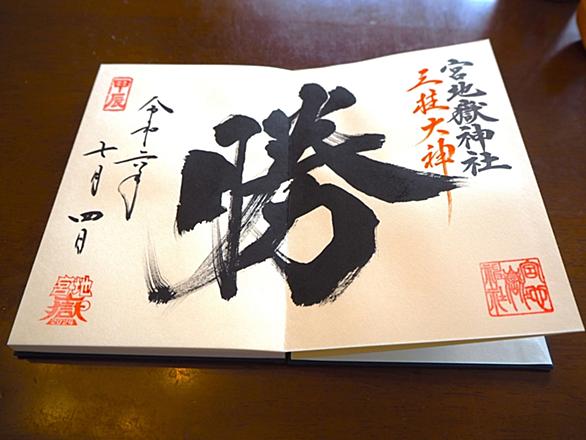 宮地嶽神社
三柱大神
宮地嶽神社
勝
甲辰
令和六年
七月四日
宮地嶽
2024